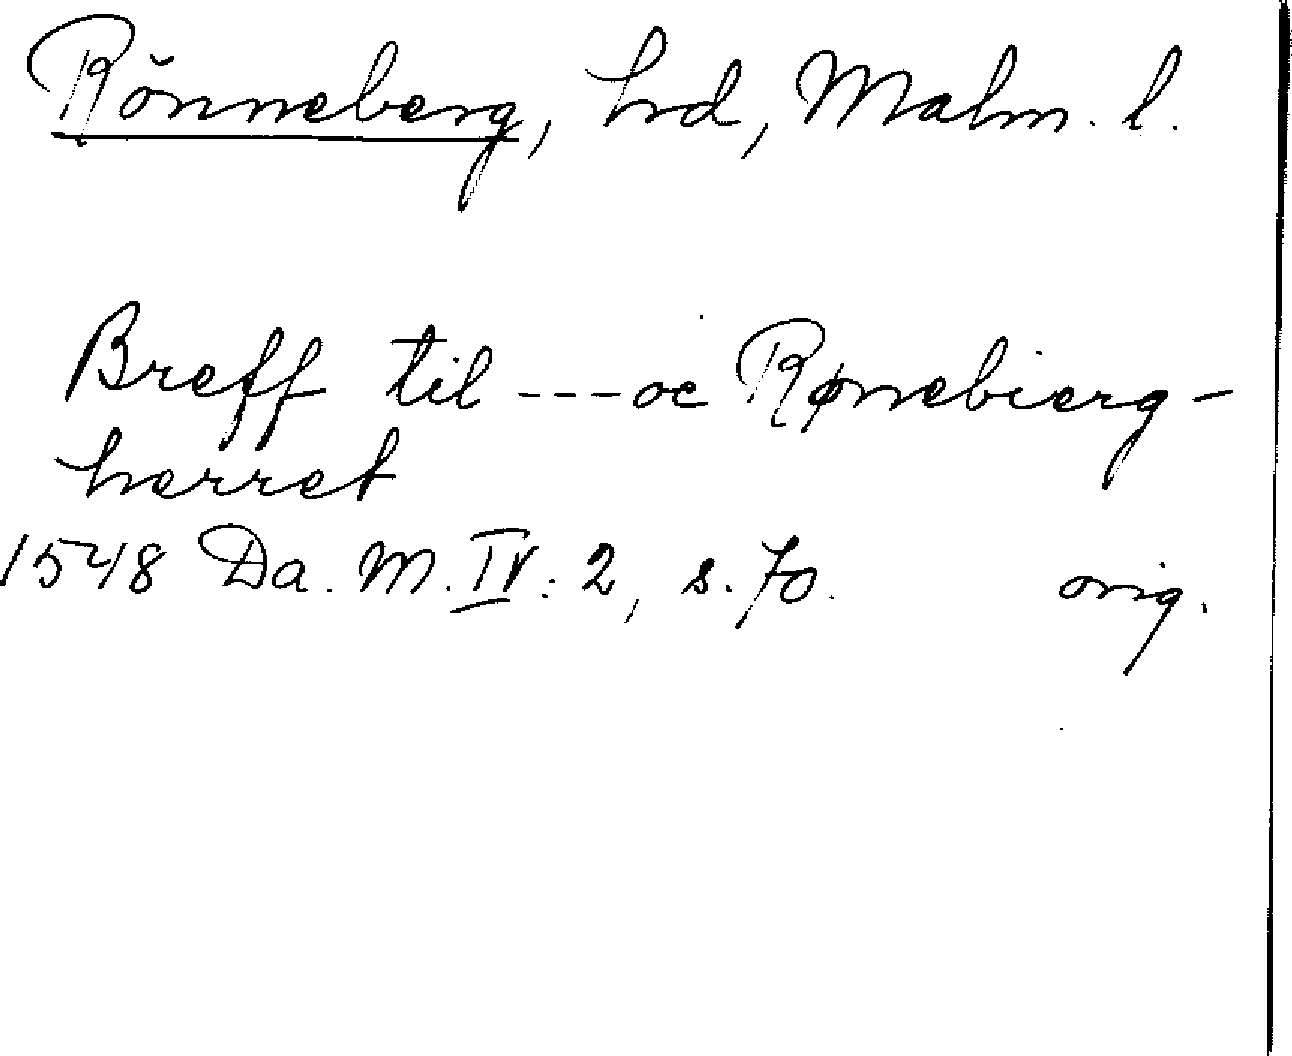 Rönneberg, hd, Malm. l.
Breff til --- oc Rønebierg-
herret
1548 Da. M. IV: 2, s. 70. orig.